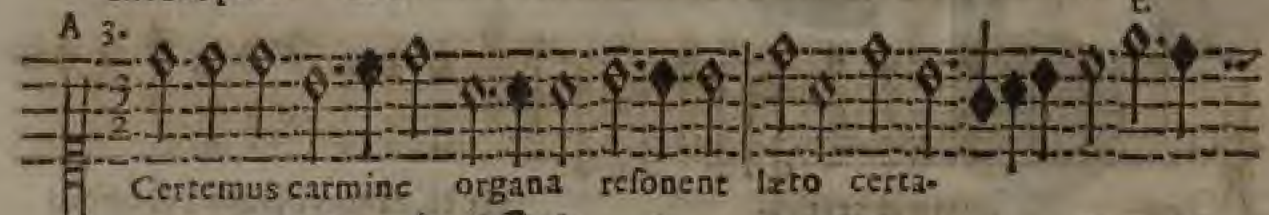 A 3.
t.
3
2
Certemus carmine organa reſonent læto certa-